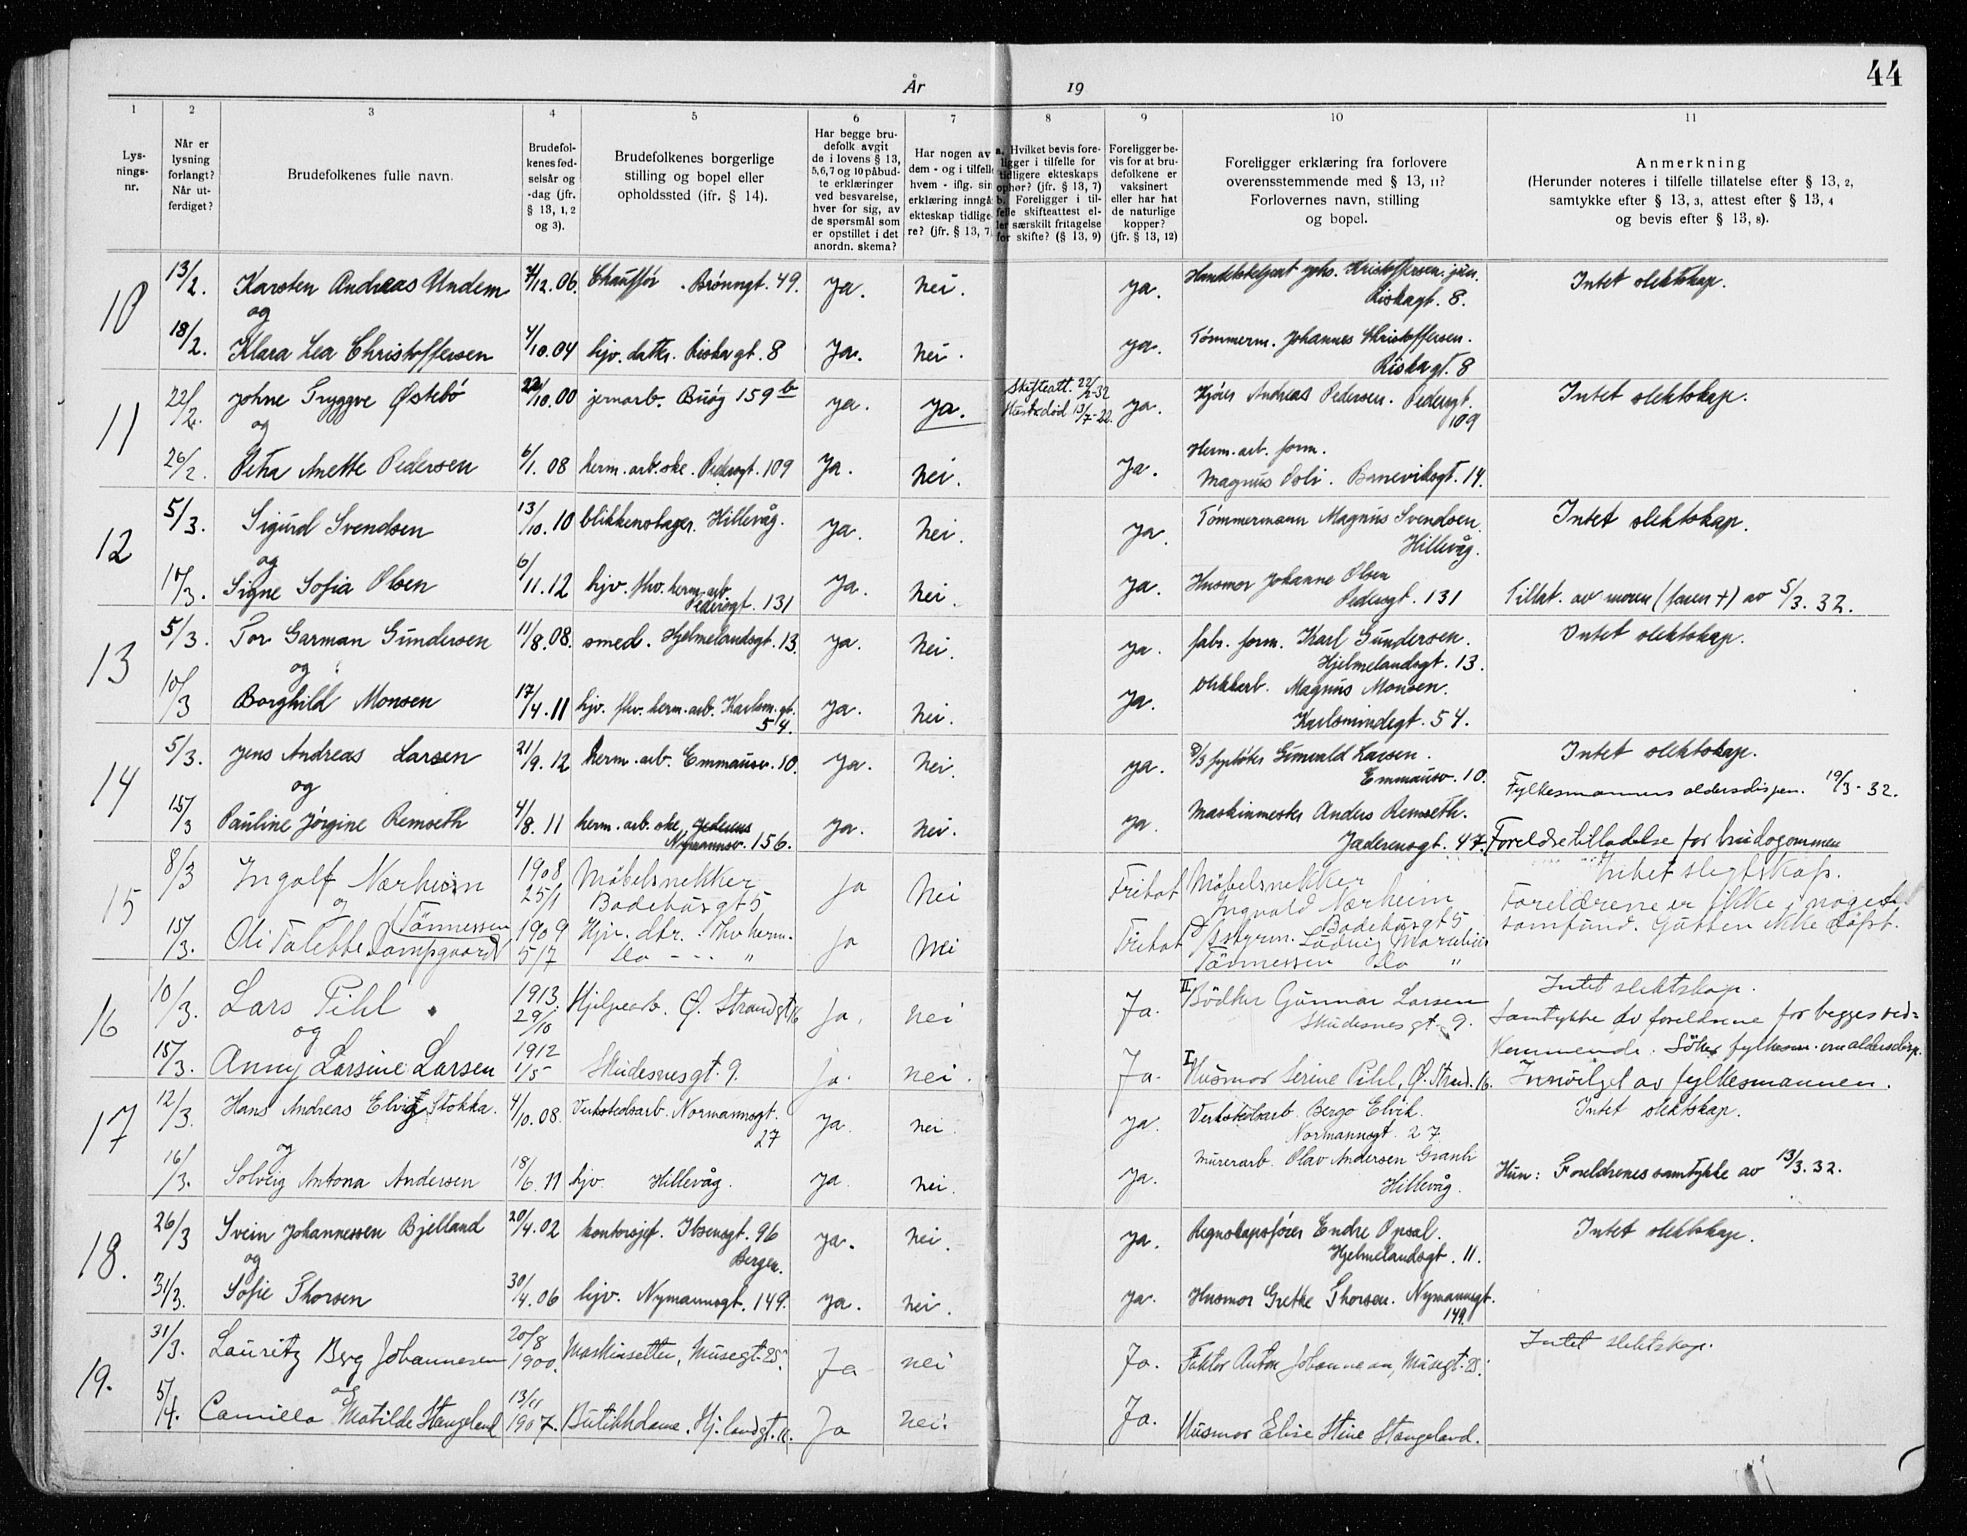 44
År 19
1 2 3 4 5 6 7 8 9 10 11
Lys-
nings-
nr.
Når er
lysning
forlangt?
Når ut-
ferdiget?
Brudefolkenes fulle navn.
Brudefol-
kenes fød-
selsår og
-dag (jfr.
§ 13, 1, 2
og 3).
Brudefolkenes borgerlige
stilling og bopel eller
opholdssted (ifr. § 14).
Har begge bru-
defolk avgit
de i lovens § 13,
5, 6, 7 og 10 påbud-
te erklæringer
ved besvarelse,
hver for sig, av
de spørsmål som
er opstillet i det
anordn. skema?
Har nogen av
dem - og i tilfelle
hvem - iflg. sin
erklæring inngå
ekteskap tidlige-
re? (jfr. § 13, 7)
a. Hvilket bevis fore-
ligger i tilfelle for
tidligere ekteskaps
ophør? (jfr. § 13, 7)
b. Foreligger i til-
felle skifteattest el-
ler særskilt fritagelse
for skifte? (§ 13, 9)
Foreligger be-
vis for at bru-
defolkene er
vaksinert
eller har hat
de naturlige
kopper?
(jfr. § 13, 12)
Foreligger erklæring fra forlovere
overensstemmende med § 13, 11?
Forlovernes navn, stilling
og bopel.
Anmerkning
(Herunder noteres i tilfelle tillatelse efter § 13, 2,
samtykke efter § 13, 3, attest efter § 13, 4
og bevis efter § 13, 8).
10 13/2. Karsten Andreas Undem 7/12.06. Chauffør. Brønngt. 49. ja. nei. ja. Johs. Kristoffersen. jun. Intet slektskap.
og Riskagt. 8.
18/2. Klara Lea Christoffersen 4/10.04 hjv. datter. Riskagt. 8 ja. nei. ja. Tømmerm. Johannes Christoffersen.
Riskagt. 8
11 22/2. Johne Tryggve Østebø 22/10.00 jernarb. Buøg 159 b ja. ja. Skifteatt. 22/2-32 ja. Kjører Andreas Pedersen. Pedersgt. Intet slektskap.
og Hustru død 13/7-22. 109
26/2. Petra Anette Pedersen 6/1.08 herm. arb.ske. Pedersgt. 109 ja. nei. ja. Herm. arb. form.
Magnus Poli. Banevikagt. 14.
12 5/3. Sigurd Svendsen 13/10.10 blikkenslager. Hillevåg. ja. nei. ja. Tømmermann Magnus Svendsen. Intet slektskap.
og Hillevåg.
10/3. Signe Sofia Olsen 6/11.12 hjv. fhv. herm. arb. ja. nei. ja. Husmor Johanne Olsen
Pedersgt. 131 Pedersgt. 131 Tillat. av moren (faren †) av 5/3. 32.
13 5/3. Tor Garman Gundersen 11/8.08. smed. Hjelmelandsgt. 13. ja. nei. ja. fabr. form. Karl Gundersen. Intet slektskap.
og Hjelmelandsgt. 13.
10/3 Borghild Monsen 17/4.11 hjv. fhv. herm. arb. Karlsm.gt. 54. ja. nei. ja. Magnus Monsen.
Karlsmindegt. 54.
14 5/3. Jens Andreas Larsen 21/9.12 herm. arb. Emmausv. 10. ja. nei. ja. D/S fyrbøter Gunvald Larsen. Intet slektskap.
og Emmausv. 10. Fylkesmannens aldersdispen. 19/3-32.
15/3 Pauline Jørgine Remseth 4/8.11 herm. arb. ske. ja. nei. ja. Maskinmester Anders Remseth.
Nymannsv. 156. Jæderensgt. 47. Foreldretilladelse for brudgommen
15 8/3 Ingolf Nærheim 1908 25/1 Möbelsnekker Badehusgt 5 ja Nei Fritat Möbelsnekker Intet slegtskap.
og Ingvald Nærheim Badehusgt 5 Foreldrene er ikke i noget
15/3. Oli Talette Dampgaard Tönnessen 1909 5/7 Hjv. dtr. fhv herm. ja nei Fritat D/S styrm. Ludvig Marelius samfund. Gutten ikke döpt.
do - - " Tönnessen do "
16 10/3. Lars Pihl. 1913. 29/10 Hjelpearb. Ø. Strandgt 16 Ja. nei Ja. II Bödker Gunnar Larsen Intet slektskap.
og Skudesnesgt. 9. Samtykke av foreldrene for begges ved-
15/3. Anny Larsine Larsen 1912 1/5 Skudesnesgt. 9. ja. nei. Ja. I Husmor Serine Pihl, Ø. Strand. 16. kommende. Søker fylkesm. om aldersdisp.
Innvilget av fylkesmannen.
17 12/3. Hans Andreas Elvik Stokka. 4/10.08. Verkstedsarb. Normannsgt. 27 ja. nei. ja. Verkstedsarb. Berge Elvik. Intet slektskap.
og Normannsgt. 27
16/3. Solveig Antona Andersen 18/6.11 hjv. Hillevåg. ja. nei. ja. Murerarb. Olav Andersen Hun: Foreldrenes samtykke av 13/3. 32.
Hillevåg.
18. 26/3 Svein Johannessen Bjelland 20/4.02 kontorsjef. Ibsensgt. 96 ja. nei. ja. Regnskapsfører Endre Opsal. Intet slektskap.
og Bergen. Hjelmelandsgt. 11.
31/3. Sofie Thorsen 30/4.06 hjv. Nymannsgt. 149. ja. nei. ja. Husmor Grethe Thorsen. Nymannsgt. 149.
19. 31/3. Lauritz Berg Johannesen 20/8 1900. Maskinsetter, Musegt. 25. Ja nei Ja. Faktor Anton Johannesen, Musegt. 25. Intet slektskap.
og
5/4. Camilla Matilde Stangeland 13/11 1907. Butikkdame. Hj.landgt. 11. Ja nei. Ja. Husmor Elise Stine Stangeland.